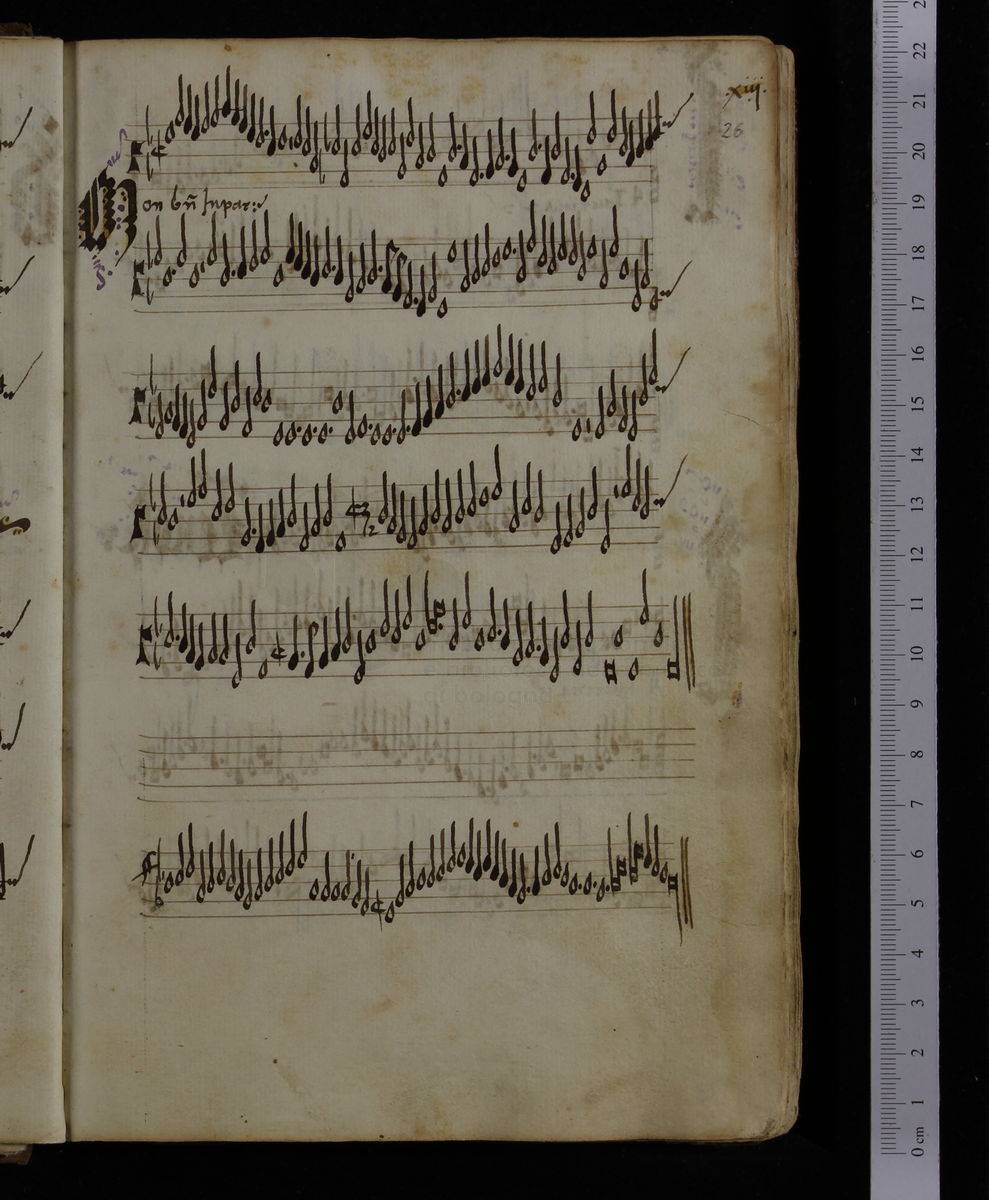 xiij.
26
Mon bñ inpar:
22
21
20
19
18
17
16
15
14
13
12
11
10
9
8
7
6
5
4
3
2
1
0 cm